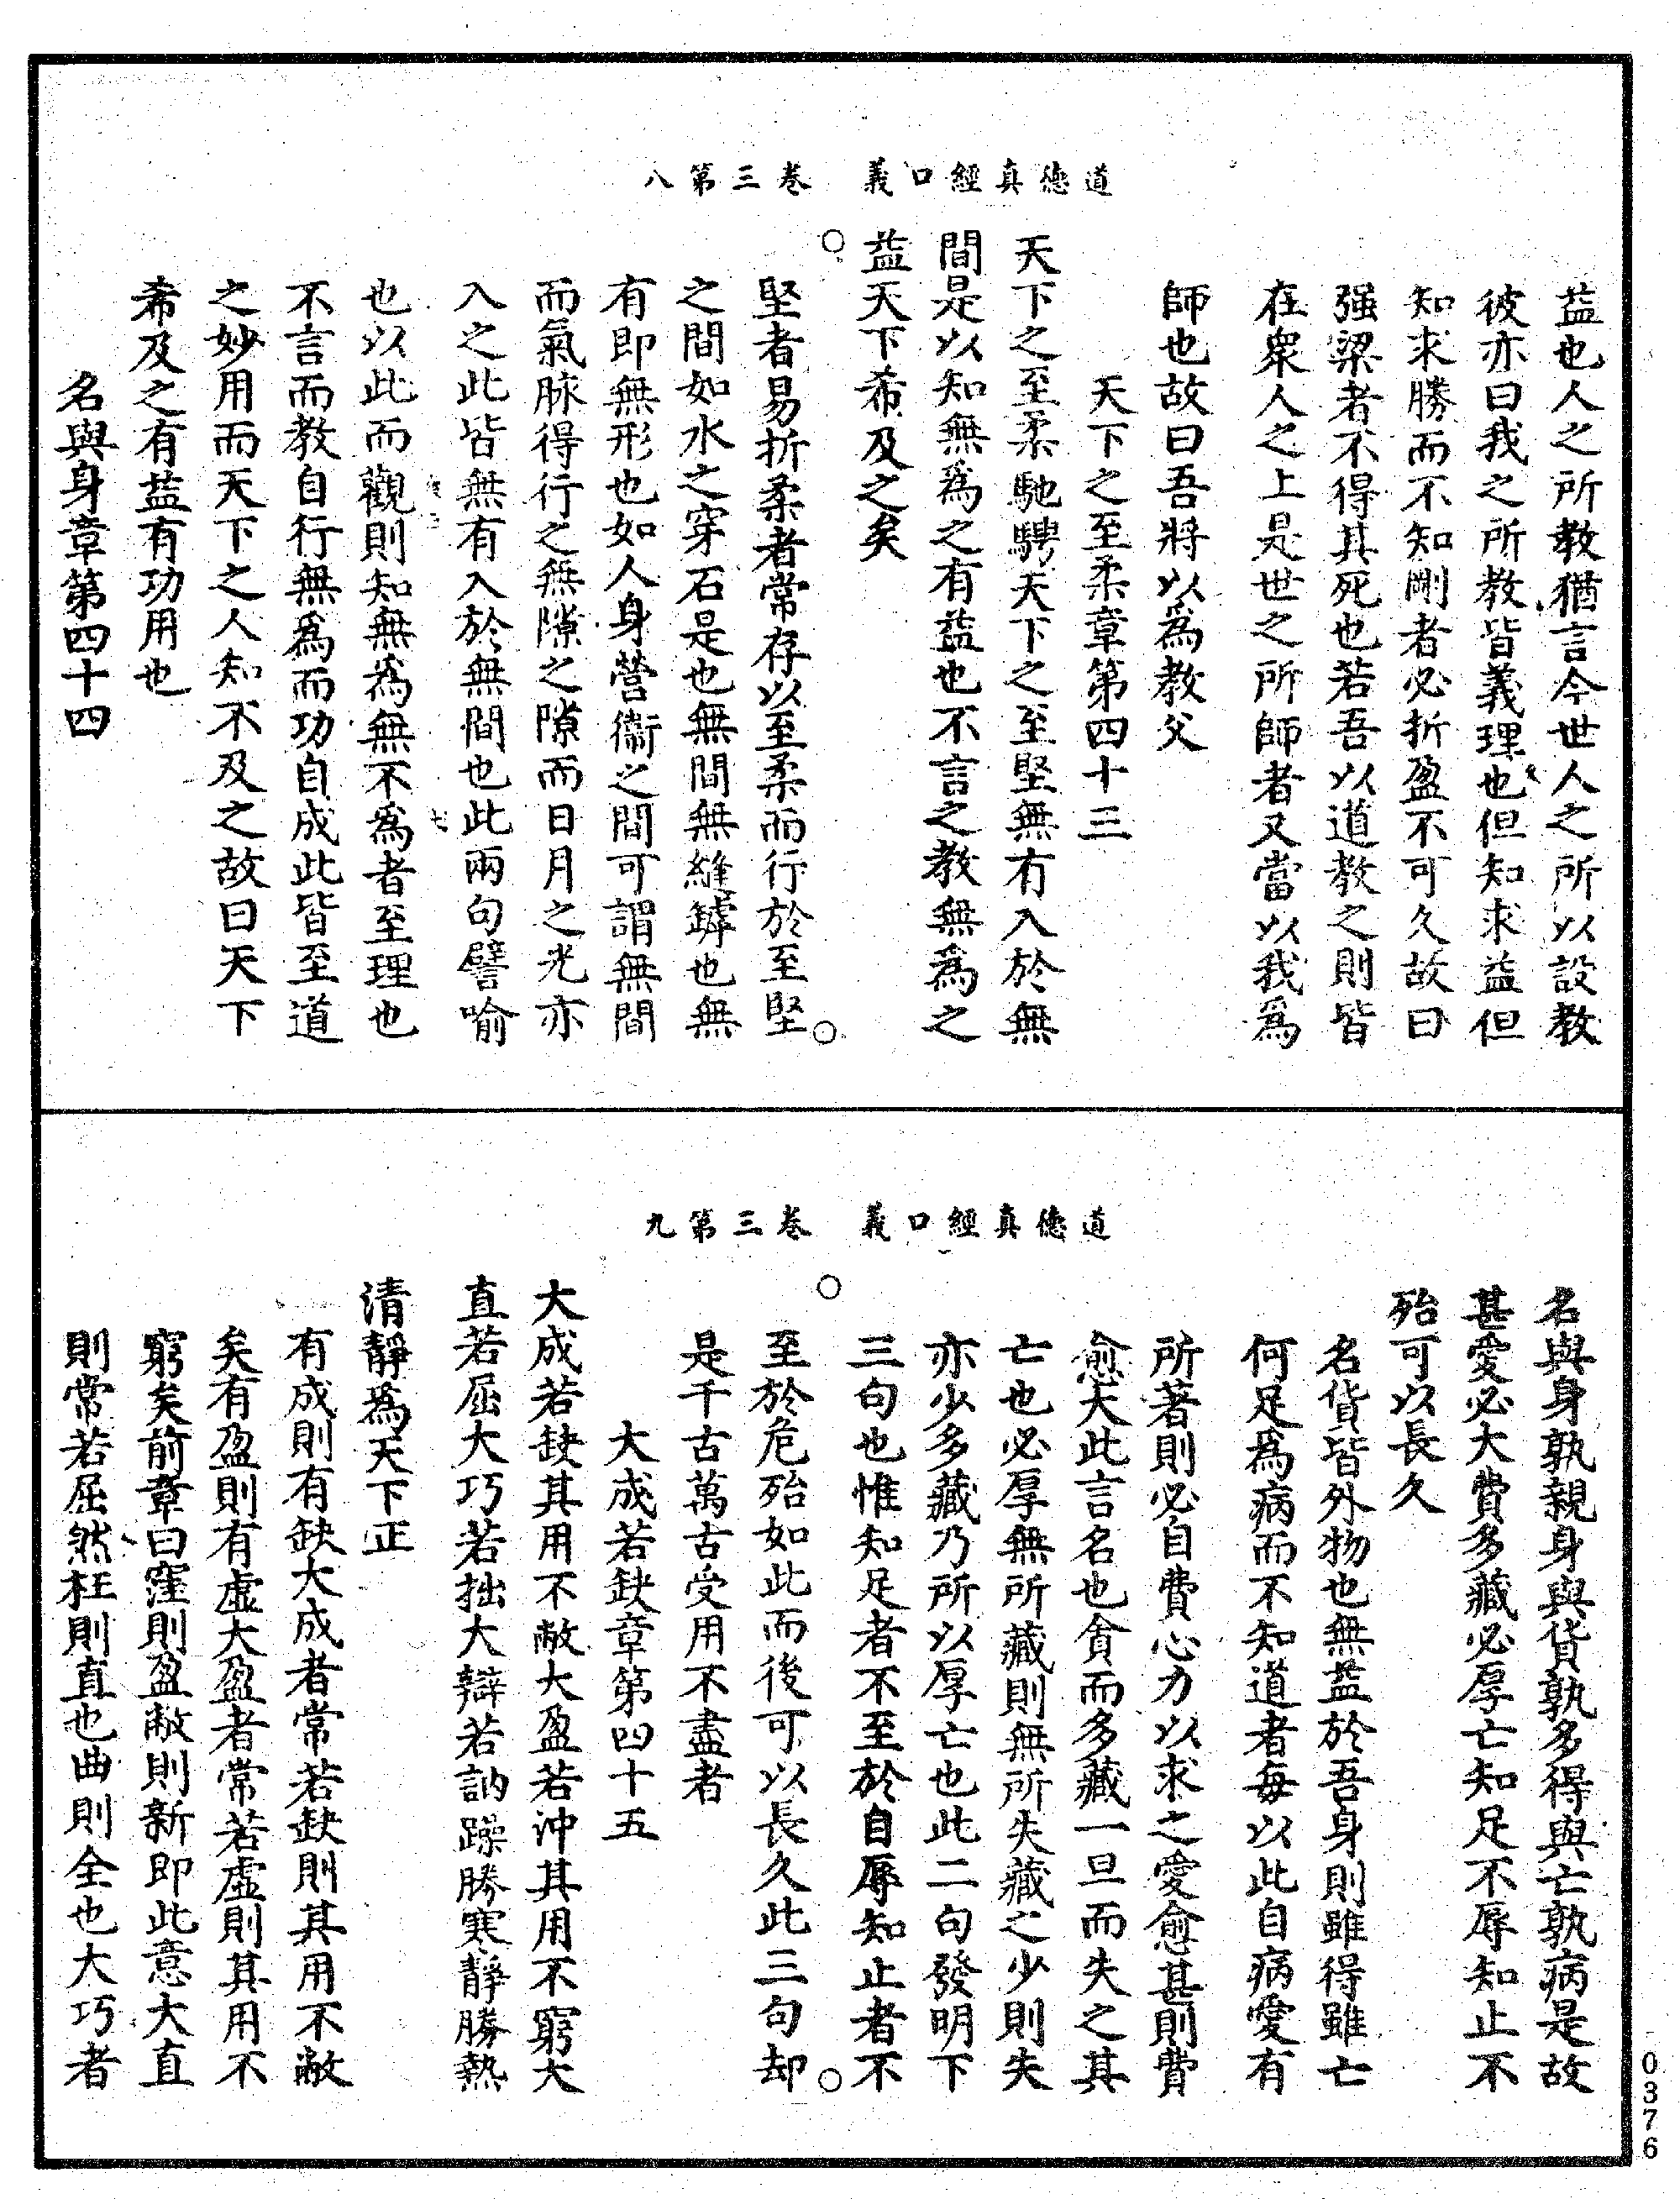 道德真經口義　卷三第八
益也人之所教猶言今世人之所以設教
彼亦曰我之所教皆義理也但知求益但
知求勝而不知剛者必折盈不可久故曰
强梁者不得其死也若吾以道教之則皆
在衆人之上是世之所師者又當以我爲
師也故曰吾將以爲教父
天下之至柔章第四十三
天下之至柔馳騁天下之至堅無有入於無
間是以知無爲之有益也不言之教無爲之
益天下希及之矣
堅者易折柔者常存以至柔而行於至堅
之間如水之穿石是也無間無縫罅也無
有即無形也如人身營衞之間可謂無間
而氣脉得行之無隙之隙而日月之光亦
入之此皆無有入於無間也此兩句譬喻
也以此而觀則知無爲無不爲者至理也
不言而教自行無爲而功自成此皆至道
之妙用而天下之人知不及之故曰天下
希及之有益有功用也
名與身章第四十四
道德真經口義　卷三第九
名與身孰親身與貨孰多得與亡孰病是故
甚愛必大費多藏必厚亡知足不辱知止不
殆可以長久
名貨皆外物也無益於吾身則雖得雖亡
何足爲病而不知道者每以此自病愛有
所著則必自費心力以求之愛愈甚則費
愈大此言名也貪而多藏一旦而失之其
亡也必厚無所藏則無所失藏之少則失
亦少多藏乃所以厚亡也此二句發明下
三句也惟知足者不至於自辱知止者不
至於危殆如此而後可以長久此三句却
是千古萬古受用不盡者
大成若缺章第四十五
大成若缺其用不敝大盈若沖其用不窮大
直若屈大巧若拙大辯若訥躁勝寒靜勝熱
清靜爲天下正
有成則有缺大成者常若缺則其用不敝
矣有盈則有虛大盈者常若虛則其用不
窮矣前章曰窪則盈敝則新即此意大直
則常若屈然枉則直也曲則全也大巧者
0376